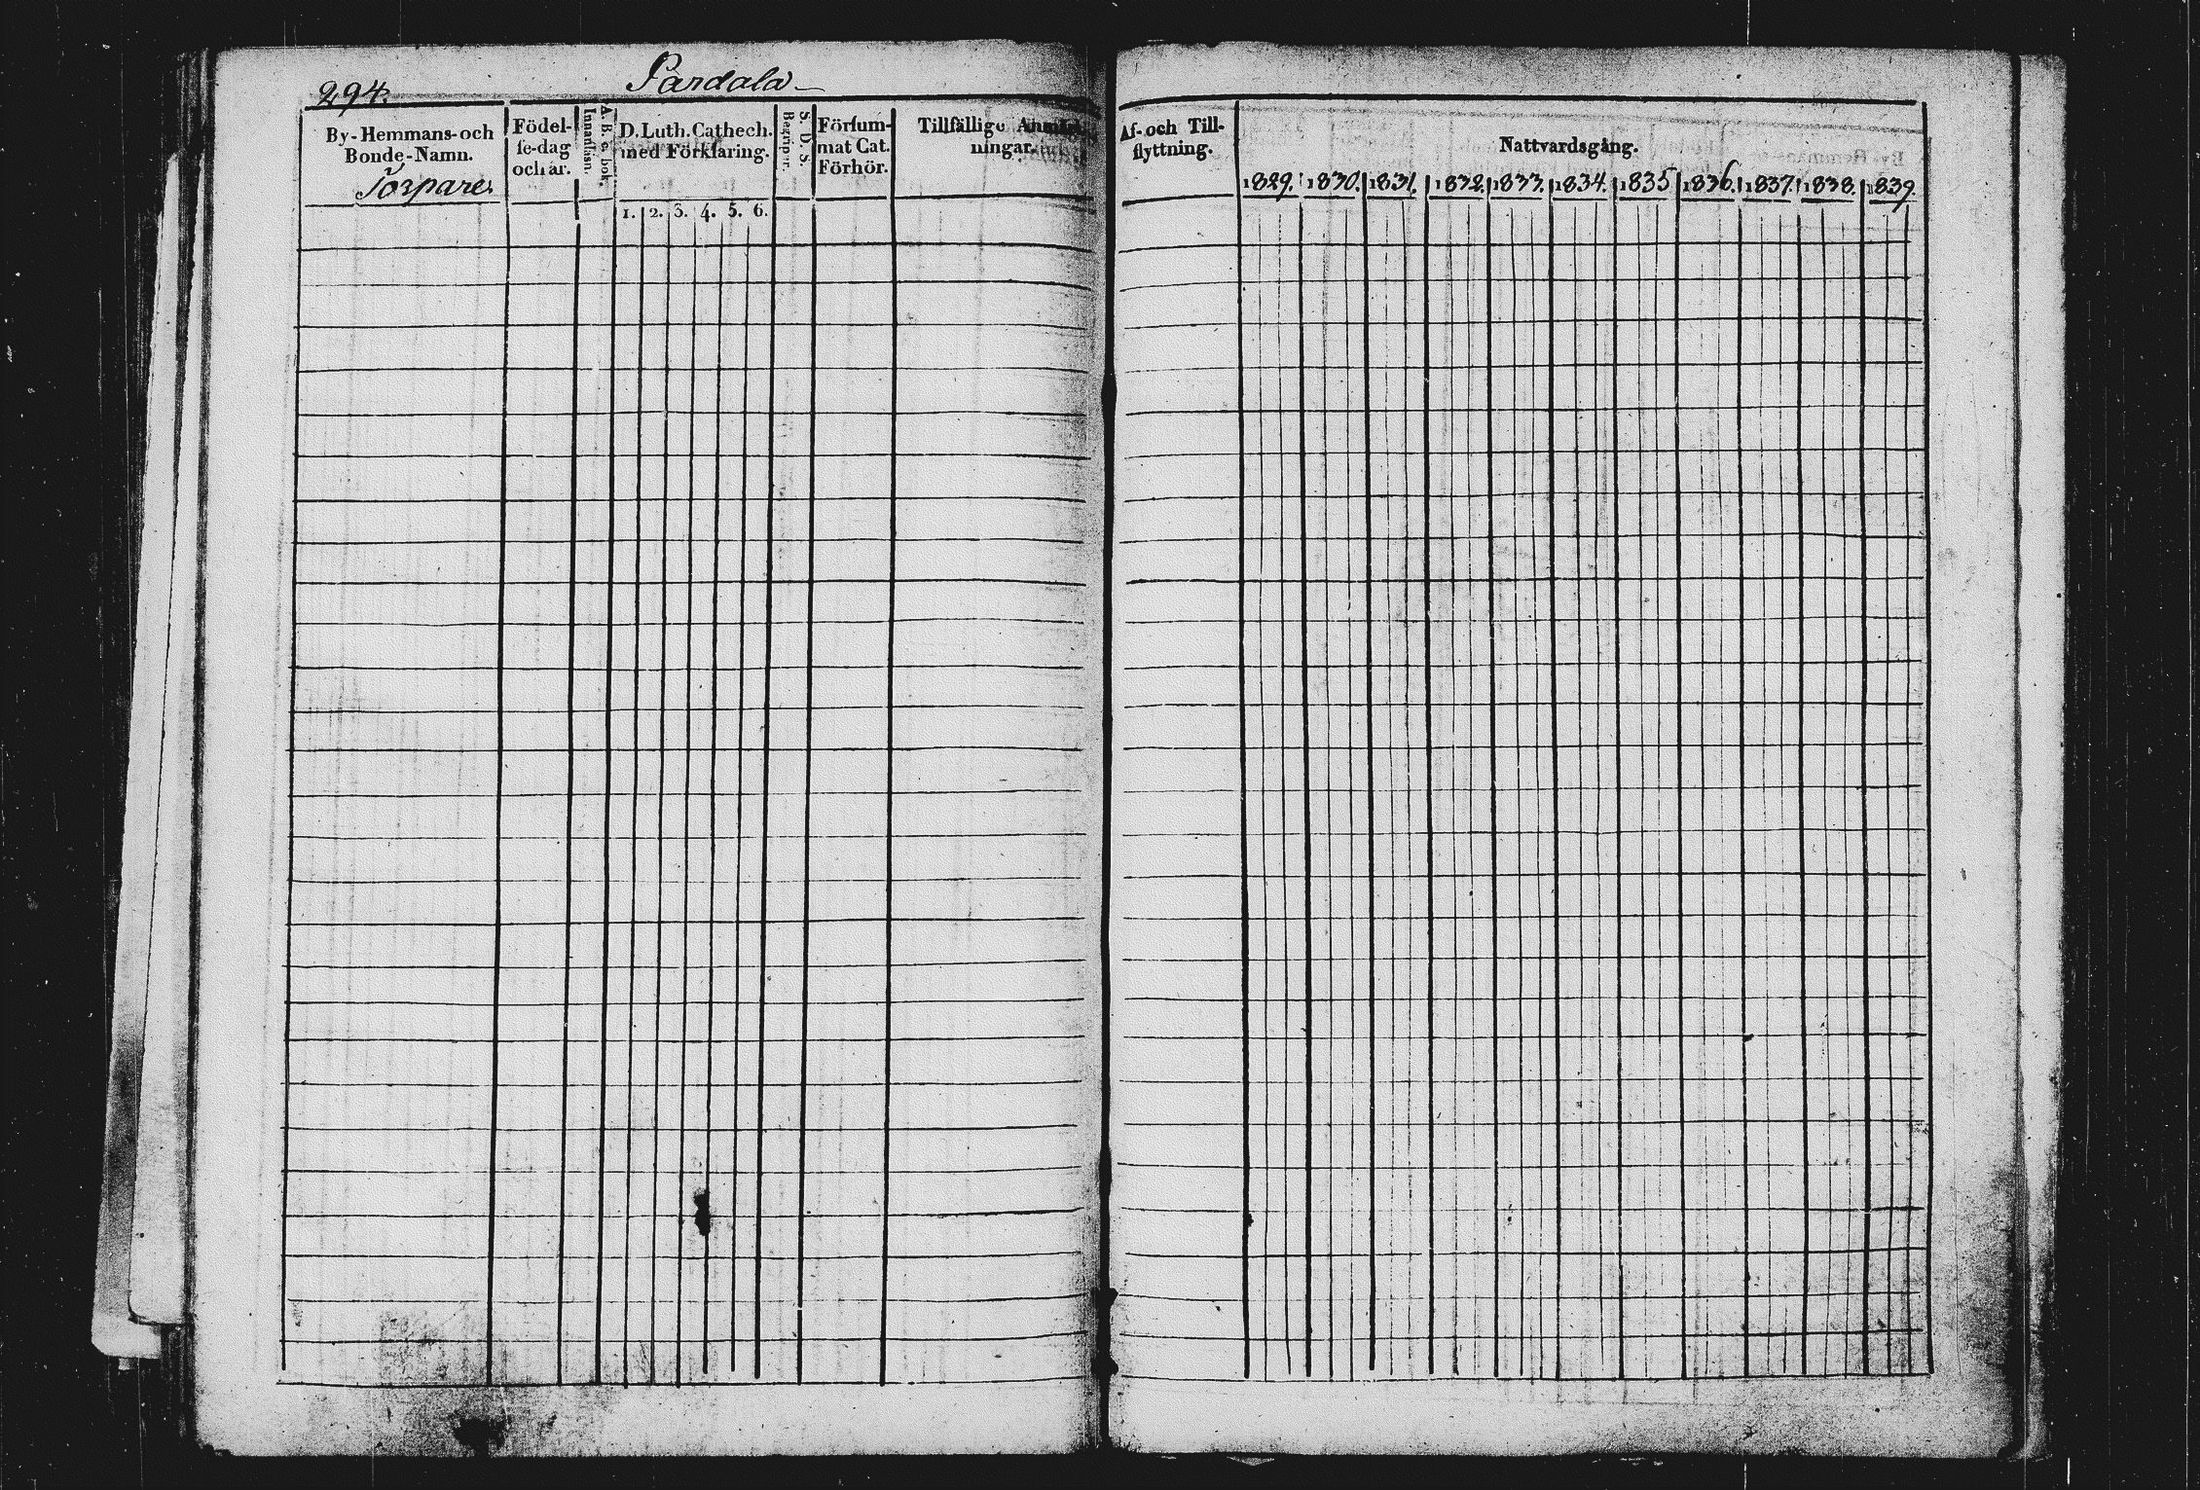 294.
Pardala
By-Hemmans-och
Bonde-Namn.
Torpare.
Födel-
se-dag
och år.
Innanläsn.
A. B. c. bok.
D. Luth. Cathech.
med Förklaring.
1. 2. 3. 4. 5. 6.
Begriper.
S. D. S.
Försum-
mat Cat.
Förhör.
Tillfällige Anmärk-
ningar.
Af- och Till-
flyttning.
Nattvardsgång.
1829. 1830. 1831. 1832. 1833. 1834. 1835 1836. 1837. 1838. 1839.